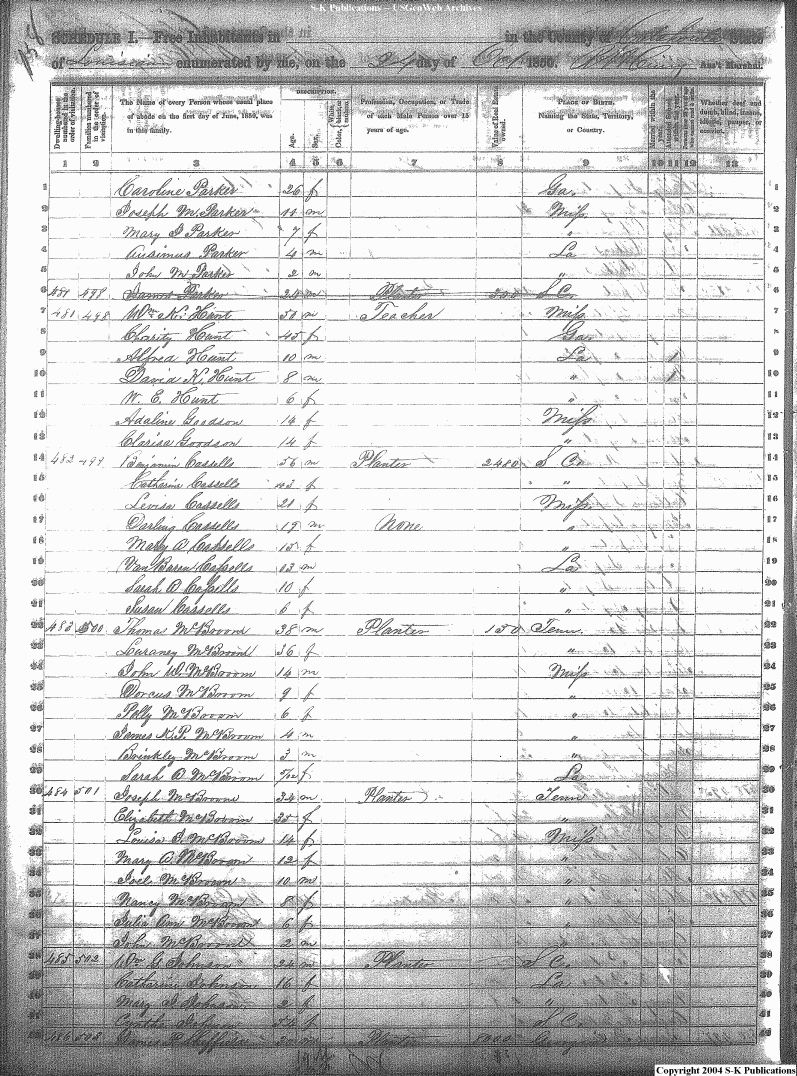 S-K Publications – USGenWeb Archives
SCHEDULE I.—Free Inhabitants in in the County of State
of Louisiana enumerated by me, on the 24 day of Oct 1850. Ass't Marshal.
Dwelling-houses numbered in the order of visitation.
Families numbered in the order of visitation.
The Name of every Person whose usual place of abode on the first day of June, 1850, was in this family.
DESCRIPTION.
Age.
Sex.
Color, White, black, or mulatto.
Profession, Occupation, or Trade of each Male Person over 15 years of age.
Value of Real Estate owned.
PLACE OF BIRTH. Naming the State, Territory, or Country.
Married within the year.
Whether deaf and dumb, blind, insane, idiotic, pauper, or convict.
1 2 3 4 5 6 7 8 9 10 11 12 13
1 Caroline Parker 26 f Ga 1
2 Joseph M. Parker 11 m Miss 2
3 Mary J Parker 7 f " 3
4 Parker 4 m La 4
5 John M Parker 2 m " 5
6 481 498 James Parker 24 m Planter 200 S Co 6
7 481 498 Wm K. Hunt 50 m Teacher Miss 7
8 Charity Hunt 45 f Ga 8
9 Alfred Hunt 10 m La 1 9
10 David K. Hunt 8 m " 1 10
11 W. E. Hunt 6 f " 11
12 Adaline Goodson 14 f Miss 12
13 Clarisa Goodson 14 f " 13
14 482 499 Benjamin Cassells 56 m Planter 2480 S Co 14
15 Catharine Cassells 43 f " 15
16 Levisa Cassells 21 f Miss 16
17 Darling Cassells 19 m None " 17
18 Mary A Cassells 15 f " 18
19 Van Buren Cassells 13 m La 19
20 Sarah A Cassells 10 f " 20
21 Susan Cassells 6 f " 21
22 483 500 Thomas McBroom 38 m Planter 150 Tenn. 22
23 Luraney McBroom 36 f " 23
24 John W. McBroom 14 m Miss 24
25 Dorcus McBroom 9 f " 25
26 Polly McBroom 6 f " 26
27 James K.P. McBroom 4 m " 27
28 Brinkley McBroom 3 m " 28
29 Sarah A McBroom /12 f La 29
30 484 501 Joseph McBroom 34 m Planter Tenn 30
31 Elizabeth McBroom 35 f " 31
32 Louisa J. McBroom 14 f Miss 32
33 Mary A. McBroom 12 f " 33
34 Joel McBroom 10 m " 34
35 Nancy McBroom 8 f " 35
36 Julia Ann McBroom 6 f " 36
37 John McBroom 2 m " 37
38 485 502 Wm G. Johnson 24 m Planter S Co 38
39 Catharine Johnson 16 f La 39
40 Mary J Johnson 2 f " 40
41 Cyntha Johnson 54 f S Co 41
42 486 503 James m Planter Georgia 42
Copyright 2004 S-K Publications